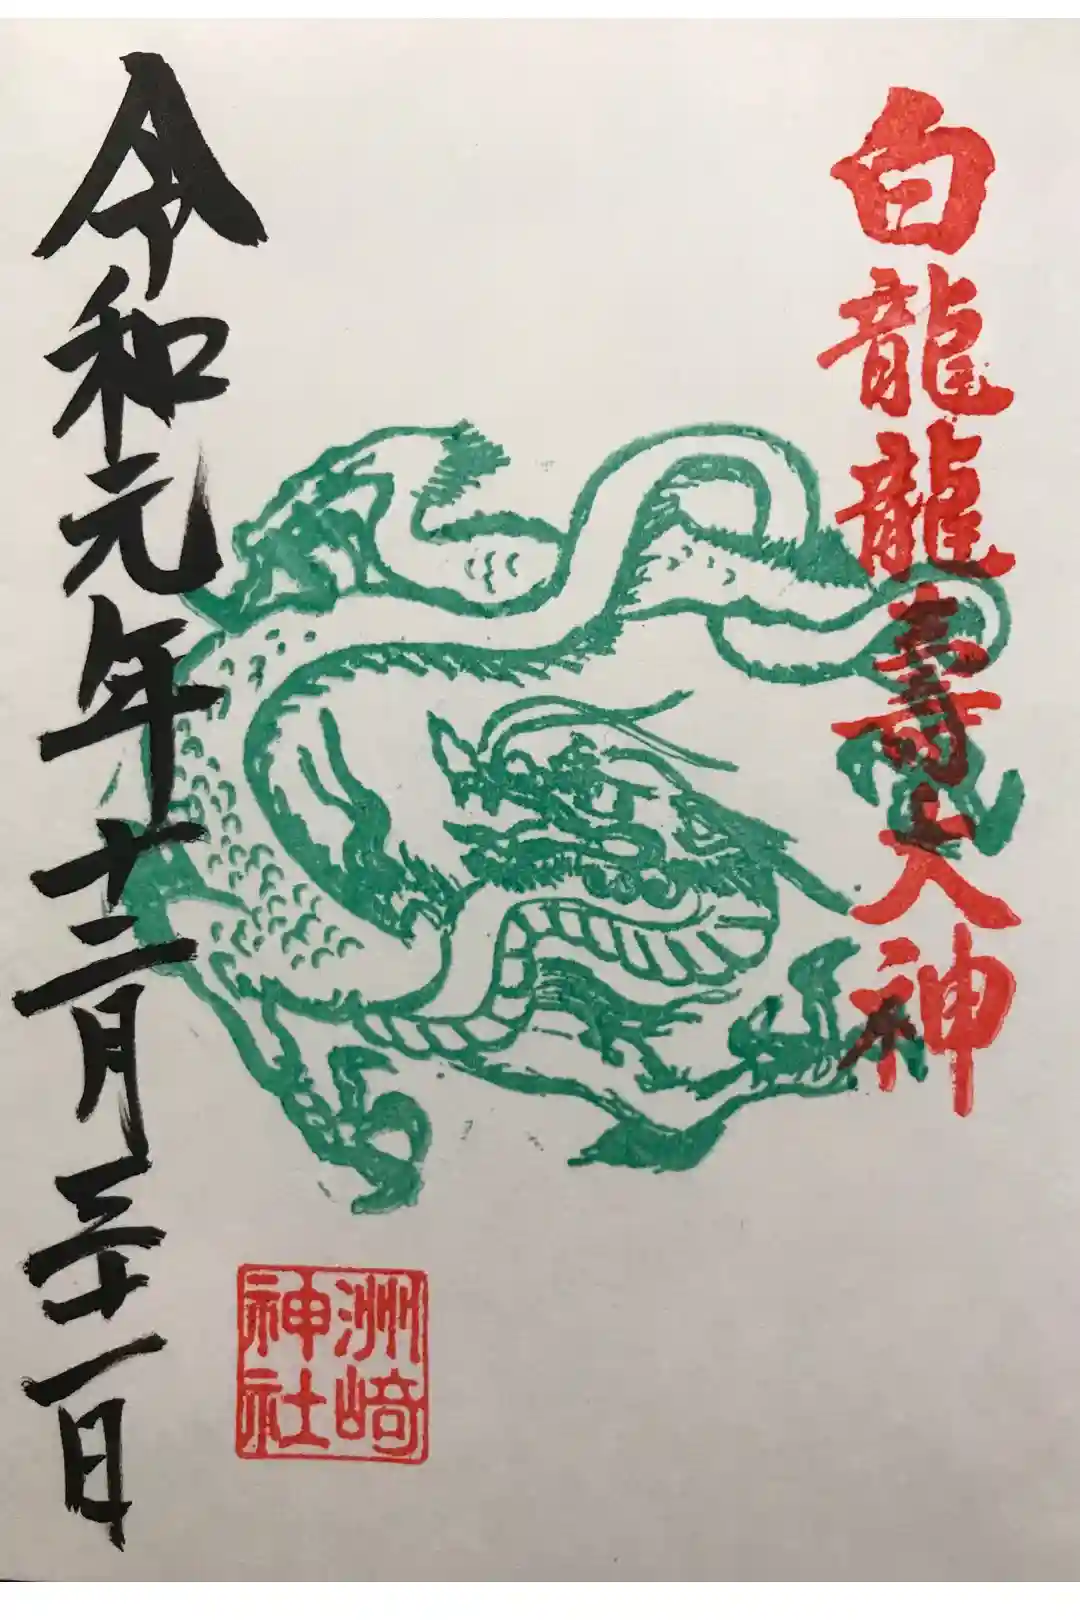 白龍龍壽大神
洲崎
神社
令和元年十二月三十一日